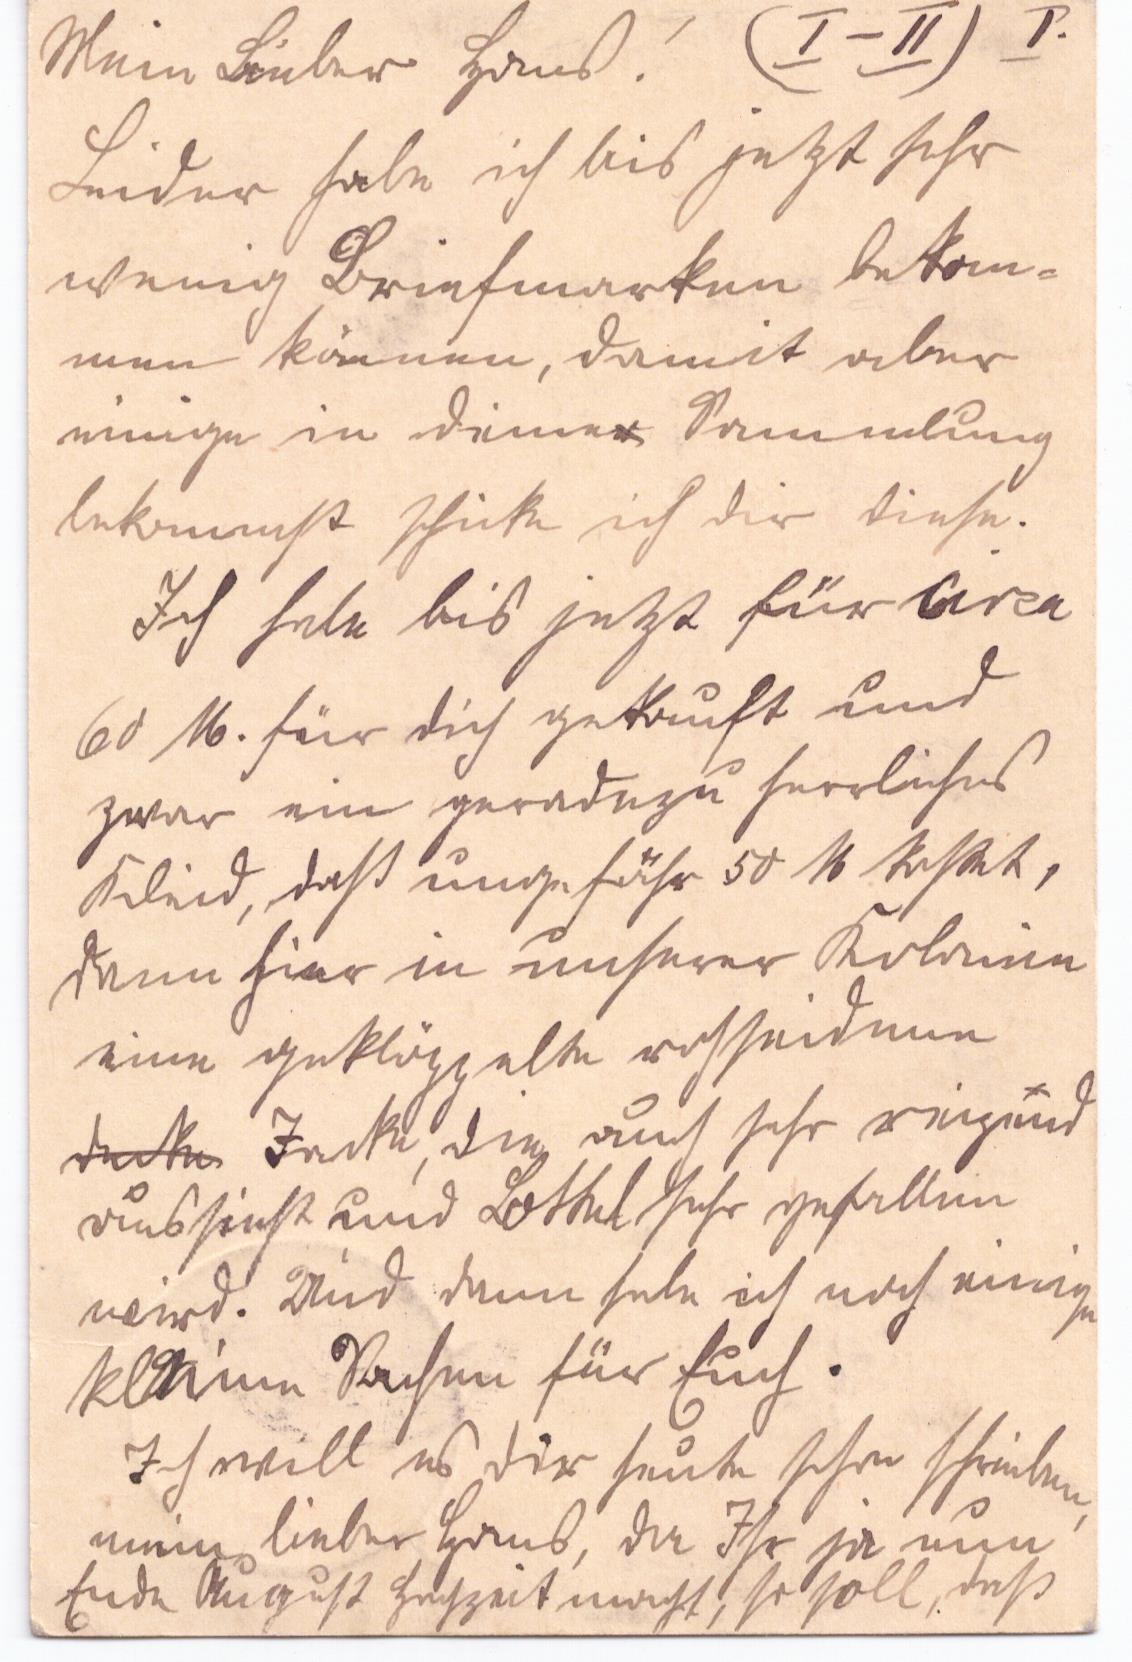 Mein Lieber Hans! (I–II) I.
Leider habe ich bis jetzt sehr
wenig Briefmarken bekom-
men können, damit aber
einige in deine Sammlung
bekommst schicke ich dir diese.
Ich habe bis jetzt für circa
60 M. für dich gekauft und
zwar ein geradezu herrliches
Kleid, daß ungefähr 50 M kostet,
dann hier in unserer Kolonie
eine geklöppelte rohseidene
decke Jacke, die auch sehr reizend
aussieht und Lottel sehr gefallen
wird. Und dann habe ich noch einige
kleine Sachen für Euch.
Ich will es dir heute schon schreiben,
mein lieber Hans, da Ihr ja nun
Ende August Hochzeit macht, so soll, daß